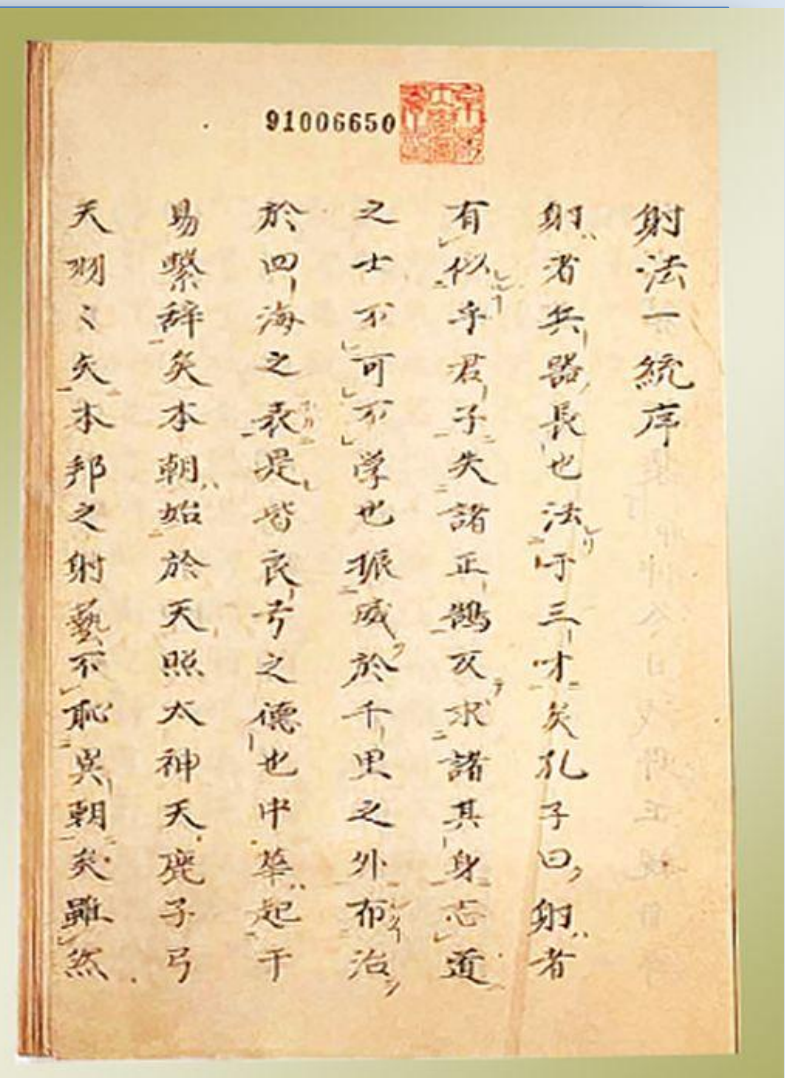 91006650
射法一統序
射者兵器長也法于三才矣孔子曰射者
有似乎君子失諸正鵠反求諸其身志道
之士不可不学也振威於千里之外布治
於四海之表是皆良弓之德也中華起于
易繋辞矣本朝始於天照太神天鹿子弓
天羽〻矢本邦之射藝不恥異朝矣雖然